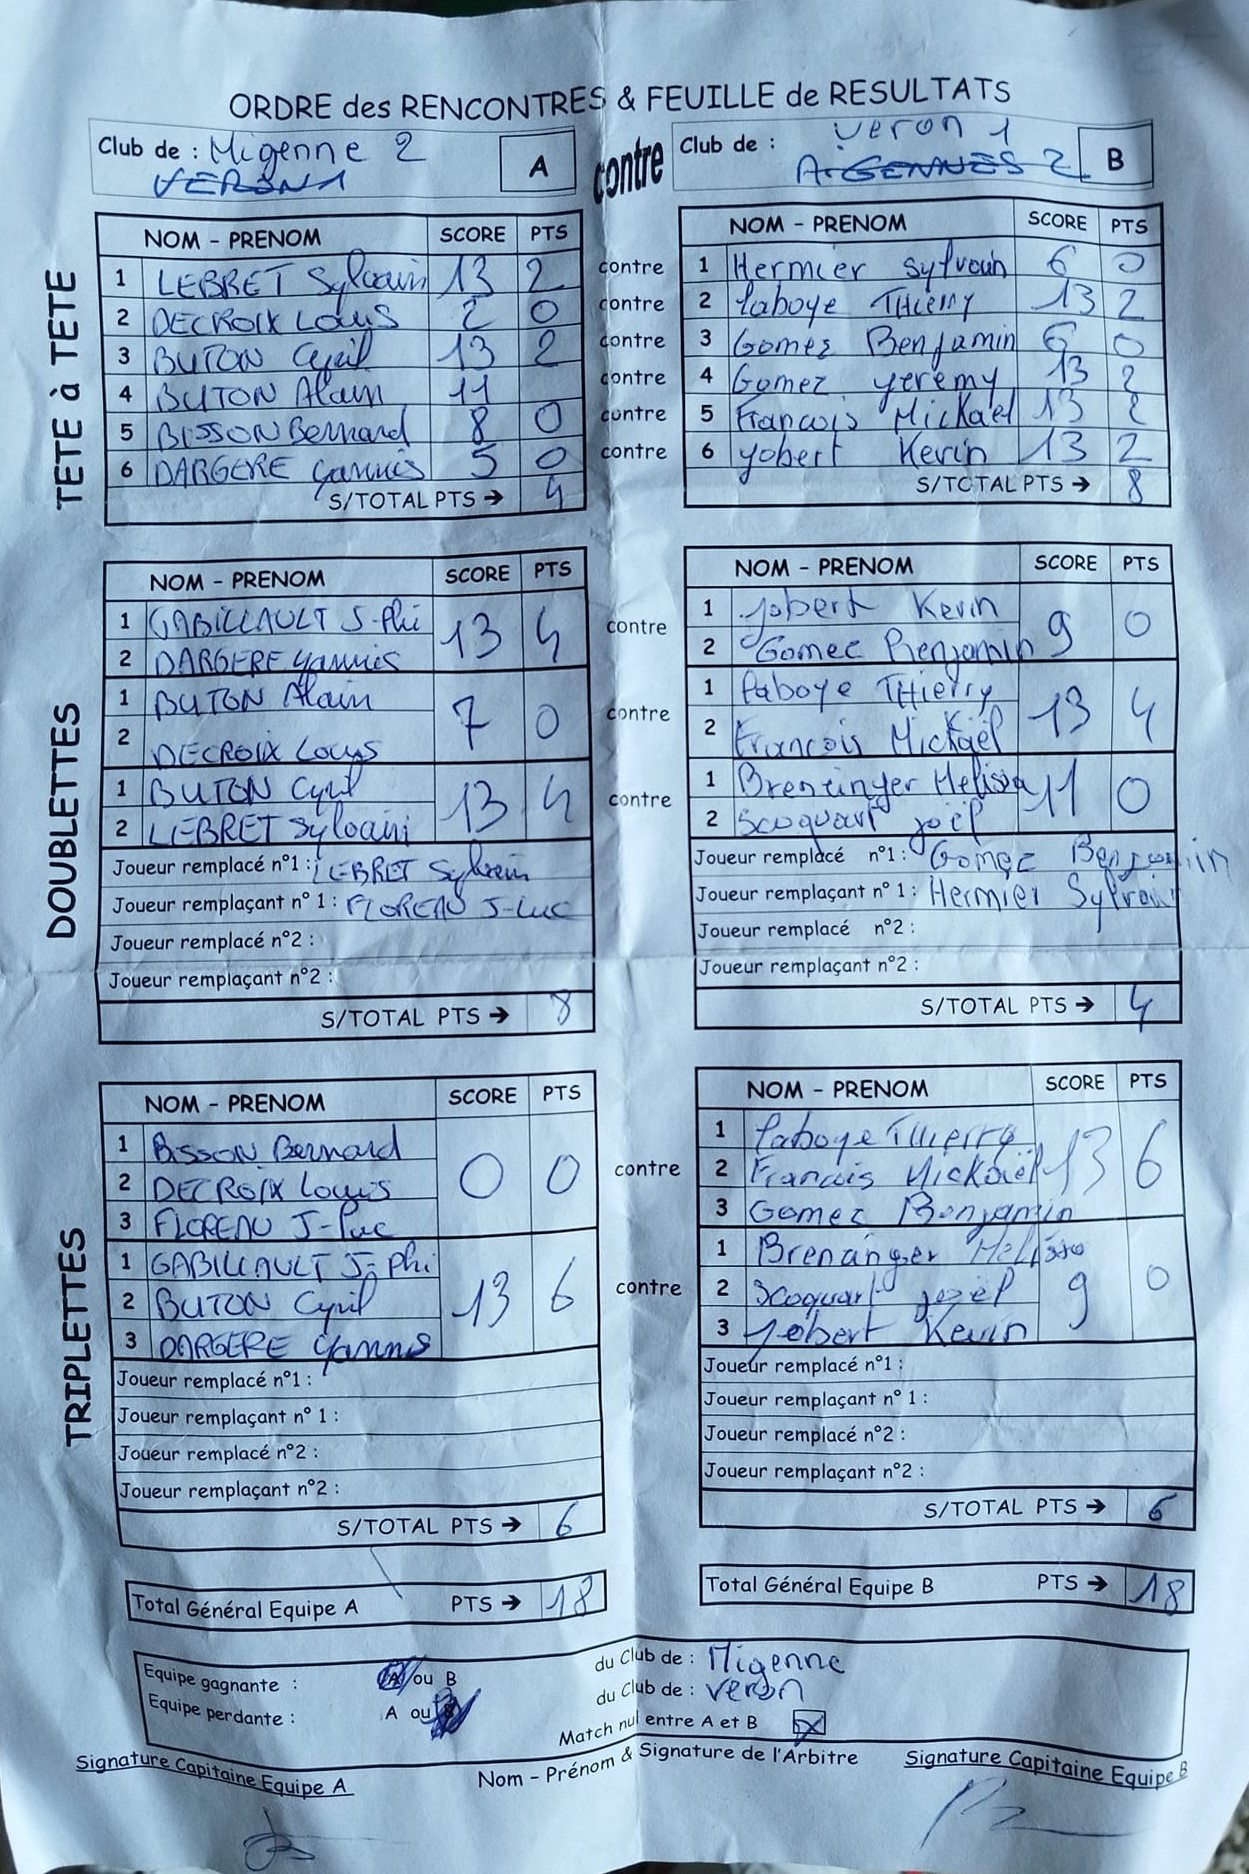 ORDRE des RENCONTRES & FEUILLE de RESULTATS
Club de : Migenne 2 A contre Club de : Veron 1 B
VERON 1 MIGENNES 2
TETE à TETE
NOM - PRENOM SCORE PTS NOM - PRENOM SCORE PTS
1 LEBRET Sylvain 13 2 contre 1 Hermier Sylvain 6 0
2 DECROIX Louis 2 0 contre 2 Laboye THierry 13 2
3 BUTON Cyril 13 2 contre 3 Gomez Benjamin 6 0
4 BUTON Alain 11 contre 4 Gomez Yeremy 13 2
5 BISSON Bernard 8 0 contre 5 Francois Mickaël 13 2
6 DARGERE Yannis 5 0 contre 6 Yobert Kevin 13 2
S/TOTAL PTS → 4 S/TOTAL PTS → 8
DOUBLETTES
NOM - PRENOM SCORE PTS NOM - PRENOM SCORE PTS
1 GABILLAULT J-Phi 13 4 contre 1 Yobert Kevin 9 0
2 DARGERE Yannis 2 Gomez Benjamin
1 BUTON Alain 7 0 contre 1 Laboye THierry 13 4
2 DECROIX Louis 2 Francois Mickaël
1 BUTON Cyril 13 4 contre 1 Breninger Melissa 11 0
2 LEBRET Sylvain 2 Scoquart joël
Joueur remplacé n°1 : LEBRET Sylvain Joueur remplacé n°1 : Gomez Benjamin
Joueur remplaçant n° 1 : FLOREAU J-Luc Joueur remplaçant n° 1 : Hermier Sylvain
Joueur remplacé n°2 : Joueur remplacé n°2 :
Joueur remplaçant n°2 : Joueur remplaçant n°2 :
S/TOTAL PTS → 8 S/TOTAL PTS → 4
TRIPLETTES
NOM - PRENOM SCORE PTS NOM - PRENOM SCORE PTS
1 BISSON Bernard 0 0 contre 1 Laboye THierry 13 6
2 DECROIX Louis 2 Francois Mickaël
3 FLOREAU J-Luc 3 Gomez Benjamin
1 GABILLAULT J-Phi 13 6 contre 1 Brenanger Melissa 9 0
2 BUTON Cyril 2 Scoquart joël
3 DARGERE Yannis 3 Yobert Kevin
Joueur remplacé n°1 : Joueur remplacé n°1 :
Joueur remplaçant n° 1 : Joueur remplaçant n° 1 :
Joueur remplacé n°2 : Joueur remplacé n°2 :
Joueur remplaçant n°2 : Joueur remplaçant n°2 :
S/TOTAL PTS → 6 S/TOTAL PTS → 6
Total Général Equipe A PTS → 18 Total Général Equipe B PTS → 18
Equipe gagnante : A ou B du Club de : Migenne
Equipe perdante : A ou B du Club de : Veron
Match nul entre A et B
Signature Capitaine Equipe A Nom - Prénom & Signature de l'Arbitre Signature Capitaine Equipe B